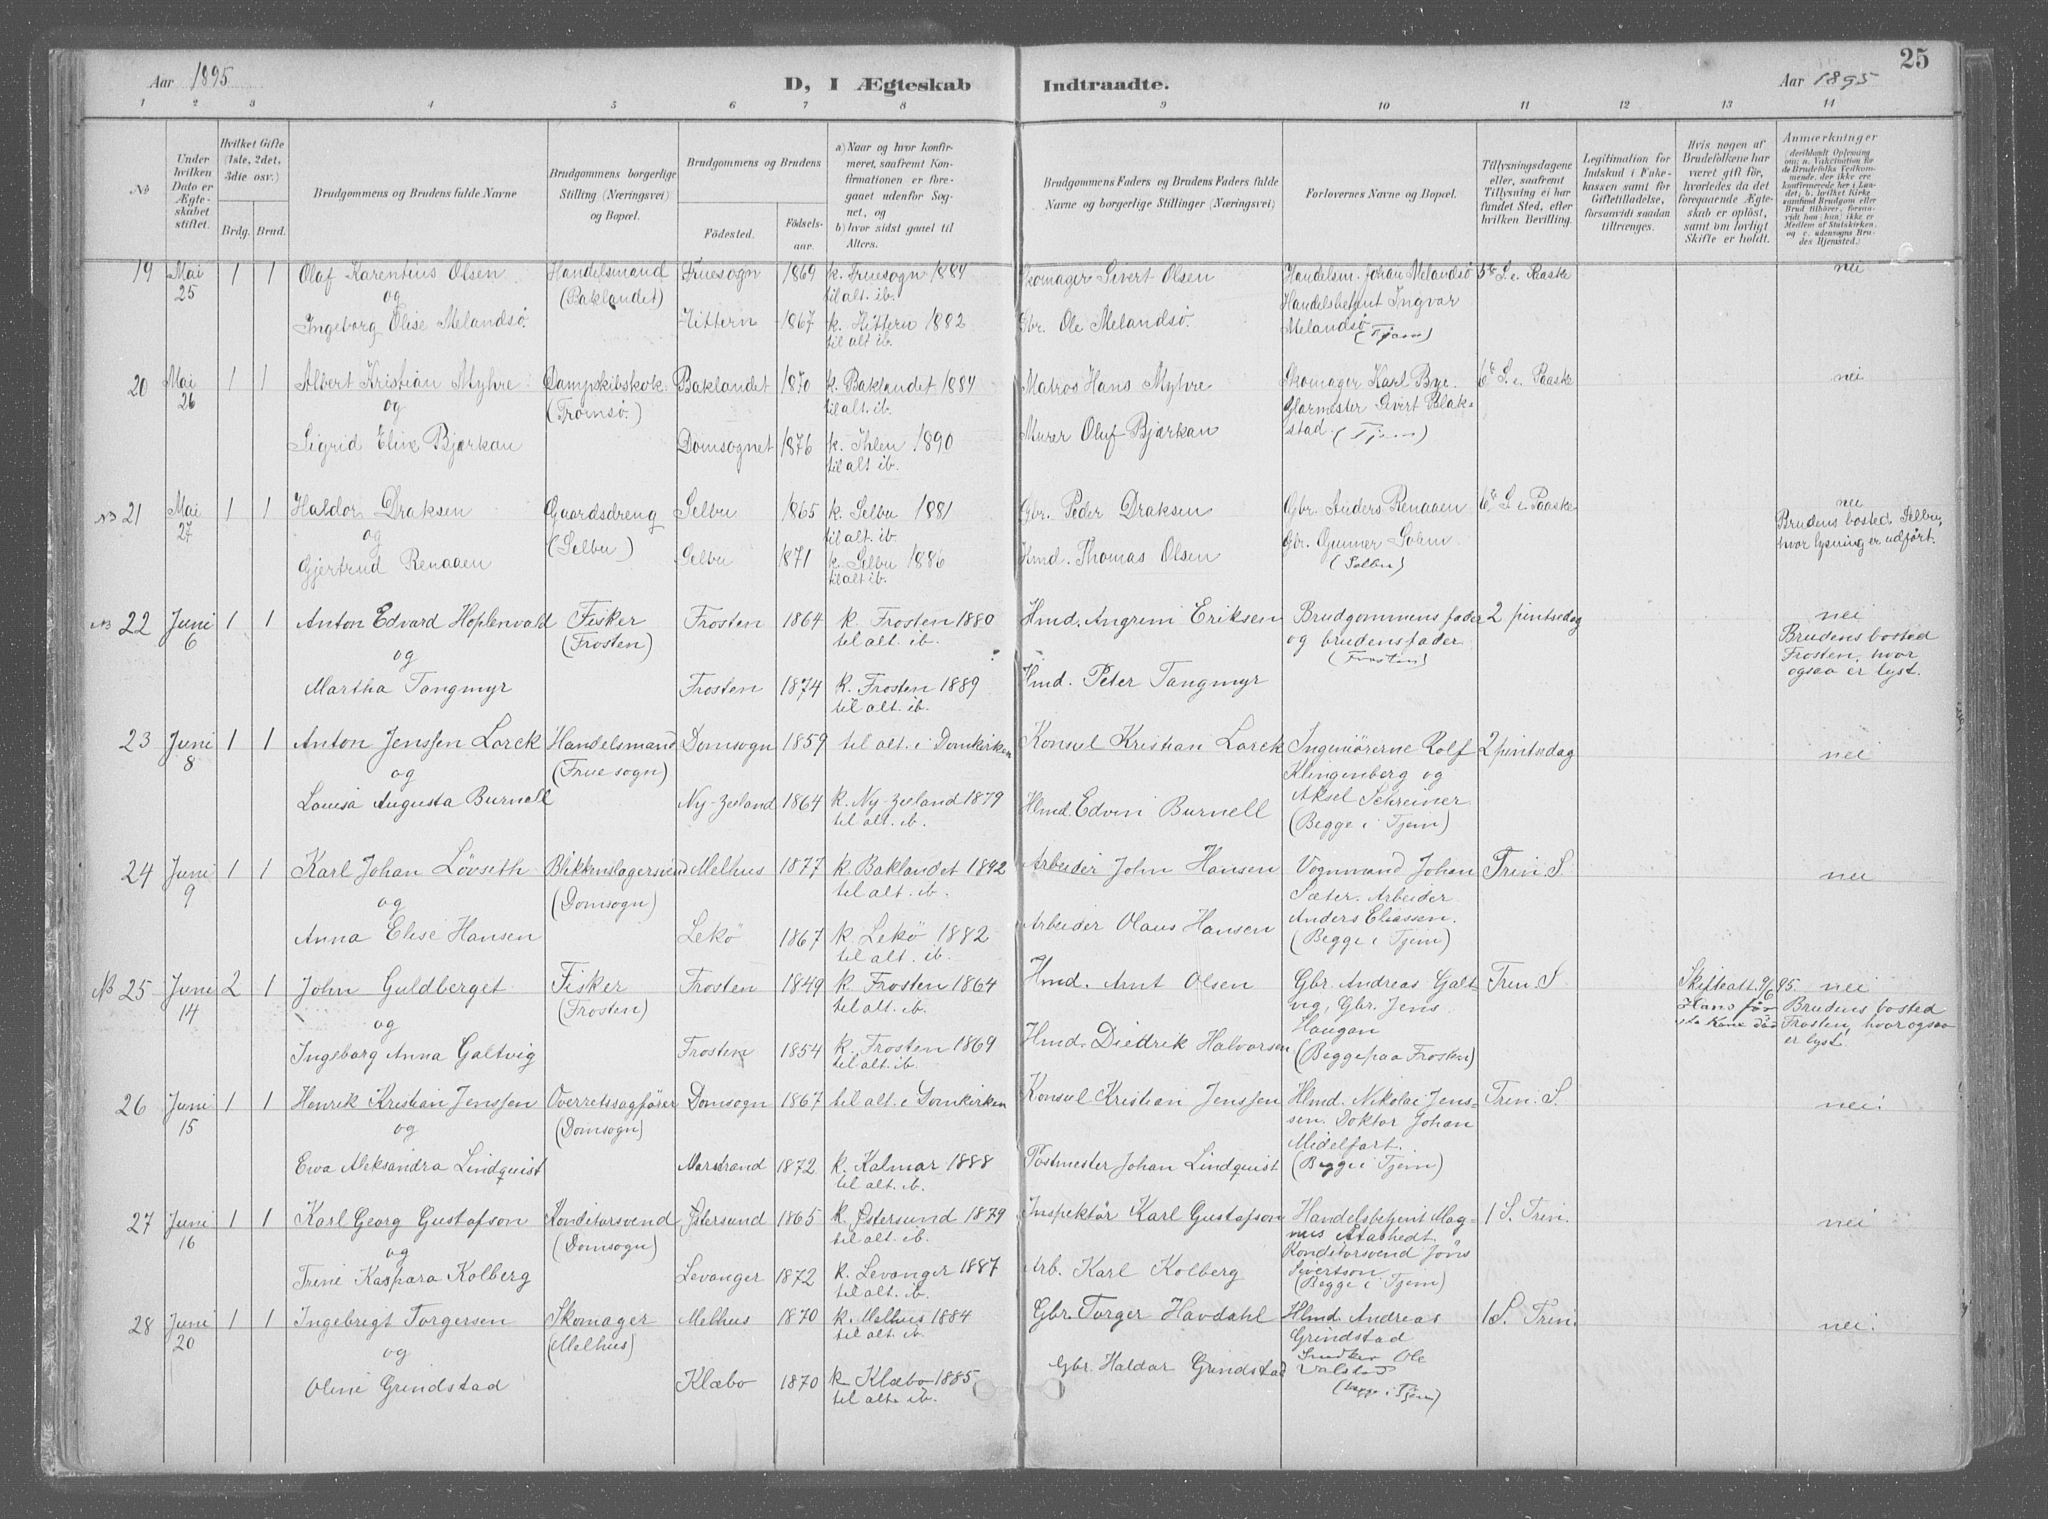 25
Aar 1895
D, I Ægteskab Indtraadte.
Aar 1895
1 2 3 4 5 6 7 8 9 10 11 12 13 14
No
Under hvilken Dato er Ægteskabet stiftet.
Hvilket Gifte (1ste, 2det, 3die osv.)
Brdg. Brud.
Brudgommens og Brudens fulde Navne
Brudgommens borgerlige Stilling (Næringsvei) og Bopæl.
Brudgommens og Brudens
Födested.
Födselsaar.
a) Naar og hvor konfirmeret, saafremt Konfirmationen er foregaaet udenfor Sognet, og
b) hvor sidst gaaet til Alters.
Brudgommens Faders og Brudens Faders fulde Navne og borgerlige Stillinger (Næringsvei)
Forlovernes Navne og Bopæl.
Tillysningsdagene eller, saafremt Tillysning ei har fundet Sted, efter hvilken Bevilling.
Legitimation for Indskud i Enkekassen samt for Giftetilladelse, forsaavidt saadan tiltrænges.
Hvis nogen af Brudefolkene har været gift för, hvorledes da det foregaaende Ægteskab er oplöst, samt om lovligt Skifte er holdt.
Anmærkninger
19 Mai 25 1 1 Olaf Karentius Olsen Handelsmand Fruesogn 1869 k. Fruesogn 1884 Skomager Sivert Olsen Handelsm. Johan Melandsö 5te S. e. Paaske nei
og (Baklandet) til alt. ib. Handelsbetjent Ingvar
Ingeborg Olise Melandsö. Hittern 1867 k. Hittern 1882 Gbr. Ole Melandsö. Melandsö (Tjem)
til alt ib.
20 Mai 26 1 1 Albert Kristian Myhre Dampskibskok Baklandet 1870 k. Baklandet 1884 Matros Hans Myhre Skomager Karl Bye. 6te S. e. Paaske nei
og (Tromsö.) til alt. ib. Glarmester Sivert Blak-
Sigrid Elise Bjørkan Domsognet 1876 k. Ihlen 1890 Murer Oluf Bjørkan stad. (Tjem)
til alt ib.
NB 21 Mai 27 1 1 Haldor Draksen Gaardsdreng Selbu 1865 k. Selbu 1881 Gbr. Peder Draksen Gbr. Anders Renaaen 6te S. e. Paaske nei
og (Selbu) til alt. ib. Gbr. Gunner Brudens bosted Selbu,
Gjertrud Renaaen Selbu 1871 k. Selbu 1886 Hmd. Thomas Olsen (Selbu) hvor lysning er udført.
til alt ib.
NB 22 Juni 6 1 1 Anton Edvard Hoplenvald Fisker Frosten 1864 k. Frosten 1880 Hmd. Angrim Eriksen Brudgommens fader 2 pintsedag nei
og (Frosten) til alt. ib. og brudens fader Brudens bosted
(Frosten) Frosten, hvor
Martha Tangmyr Frosten 1874 k. Frosten 1889 Hmd. Peter Tangmyr ogsaa er lyst.
til alt. ib.
23 Juni 8 1 1 Anton Jenssen Lorck Handelsmand Domsogn 1859 til alt. i Domkirken Konsul Kristian Lorck Ingeniörerne Rolf 2 pintsedag nei
og (Frue sogn) Klingenberg og
Louisa Augusta Burnell Ny-Zeeland 1864 k. Ny-Zeeland 1879 Hlmd. Edvin Burnell Aksel Schreiner
til alt. ib. (Begge i Tjem)
24 Juni 9 1 1 Karl Johan Lövseth Blikkenslagersvend Melhus 1877 k. Baklandet 1892 Arbeider John Hansen Vognmand Johan Trin. S. nei
og (Domsogn) til alt. ib. Sæter. Arbeider
Anna Elise Hansen Lekö 1867 k. Lekö 1882 Arbeider Olaus Hansen Anders Eliassen.
til alt. ib. (Begge i Tjem)
NB 25 Juni 14 2 1 John Guldberget Fisker Frosten 1849 k. Frosten 1864 Hmd. Arnt Olsen Gbr. Andreas Galt- Trin. S Skifteatt. 9/6 95. nei
og (Frosten) til alt. ib. vig, Gbr. Jens Hans för Brudens bosted
Haugan ste Kone död Frosten, hvor ogsaa
Ingeborg Anna Galtvig Frosten 1854 k. Frosten 1869 Hmd. Diedrik Halvorsen (Begge paa Frosten) er lyst.
til alt. ib.
26 Juni 15 1 1 Henrik Kristian Jenssen Overretssagfører Domsogn 1867 til alt. i Domkirken Konsul Kristian Jenssen Hlmd. Nikolai Jens- Trin. S. nei.
og (Domsogn) sen. Doktor Johan
Midelfart.
Ewa Aleksandra Lindquist Marstrand 1872 k. Kalmar 1888 Postmester Johan Lindquist (Begge i Tjem)
til alt. ib.
27 Juni 16 1 1 Karl Georg Gustafson Konditorsvend Østersund 1865 k. Østersund 1879 Inspektör Karl Gustafson Handelsbetjent Mag- 1 S. Trin. nei
og (Domsogn) til alt. ib. nus
Konditorsvend Jöns
Trine Kaspara Kolberg Levanger 1872 k. Levanger 1887 Arb. Karl Kolberg Sivertson
til alt. ib. (Begge i Tjem)
28 Juni 20 1 1 Ingebrigt Torgersen Skomager Melhus 1870 k. Melhus 1884 Gbr. Torger Havdahl Hlmd. Andreas 1 S. Trin. nei.
og (Melhus) til alt. ib. Grindstad
Snedker Ole
Oline Grindstad Klæbo 1870 k. Klæbo 1885 Gbr. Haldor Grindstad Valstad
til alt. ib. (begge i Tjem)